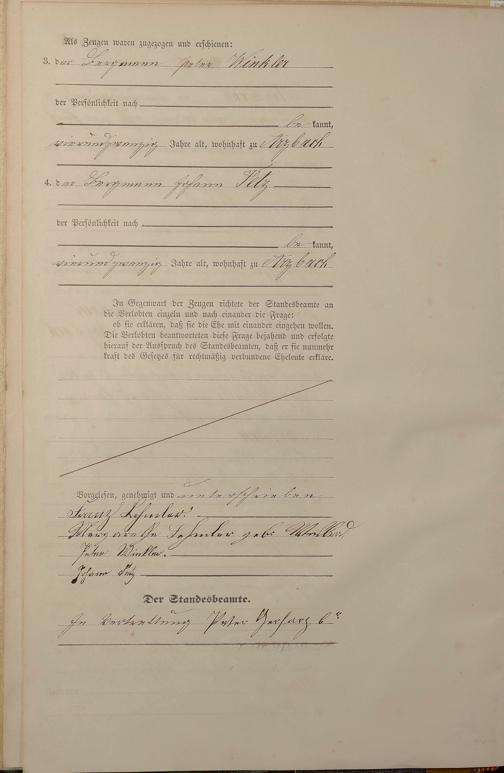 Als Zeugen waren zugezogen und erschienen:
3. der Bergmann Peter Winkler
der Persönlichkeit nach
be kannt,
vierundzwanzig Jahre alt, wohnhaft zu Arzbach
4. der Bergmann Johann Pelz
der Persönlichkeit nach
be kannt,
vierundzwanzig Jahre alt, wohnhaft zu Arzbach
In Gegenwart der Zeugen richtete der Standesbeamte an
die Verlobten einzeln und nach einander die Frage:
ob sie erklären, daß sie die Ehe mit einander eingehen wollen.
Die Verlobten beantworteten diese Frage bejahend und erfolgte
hierauf der Ausspruch des Standesbeamten, daß er sie nunmehr
kraft des Gesetzes für rechtmäßig verbundene Eheleute erkläre.
Vorgelesen, genehmigt und unterschrieben
Franz
Margarethe geb.
Peter Winkler.
Johann Pelz
Der Standesbeamte.
In Vertretung Peter Gerharz